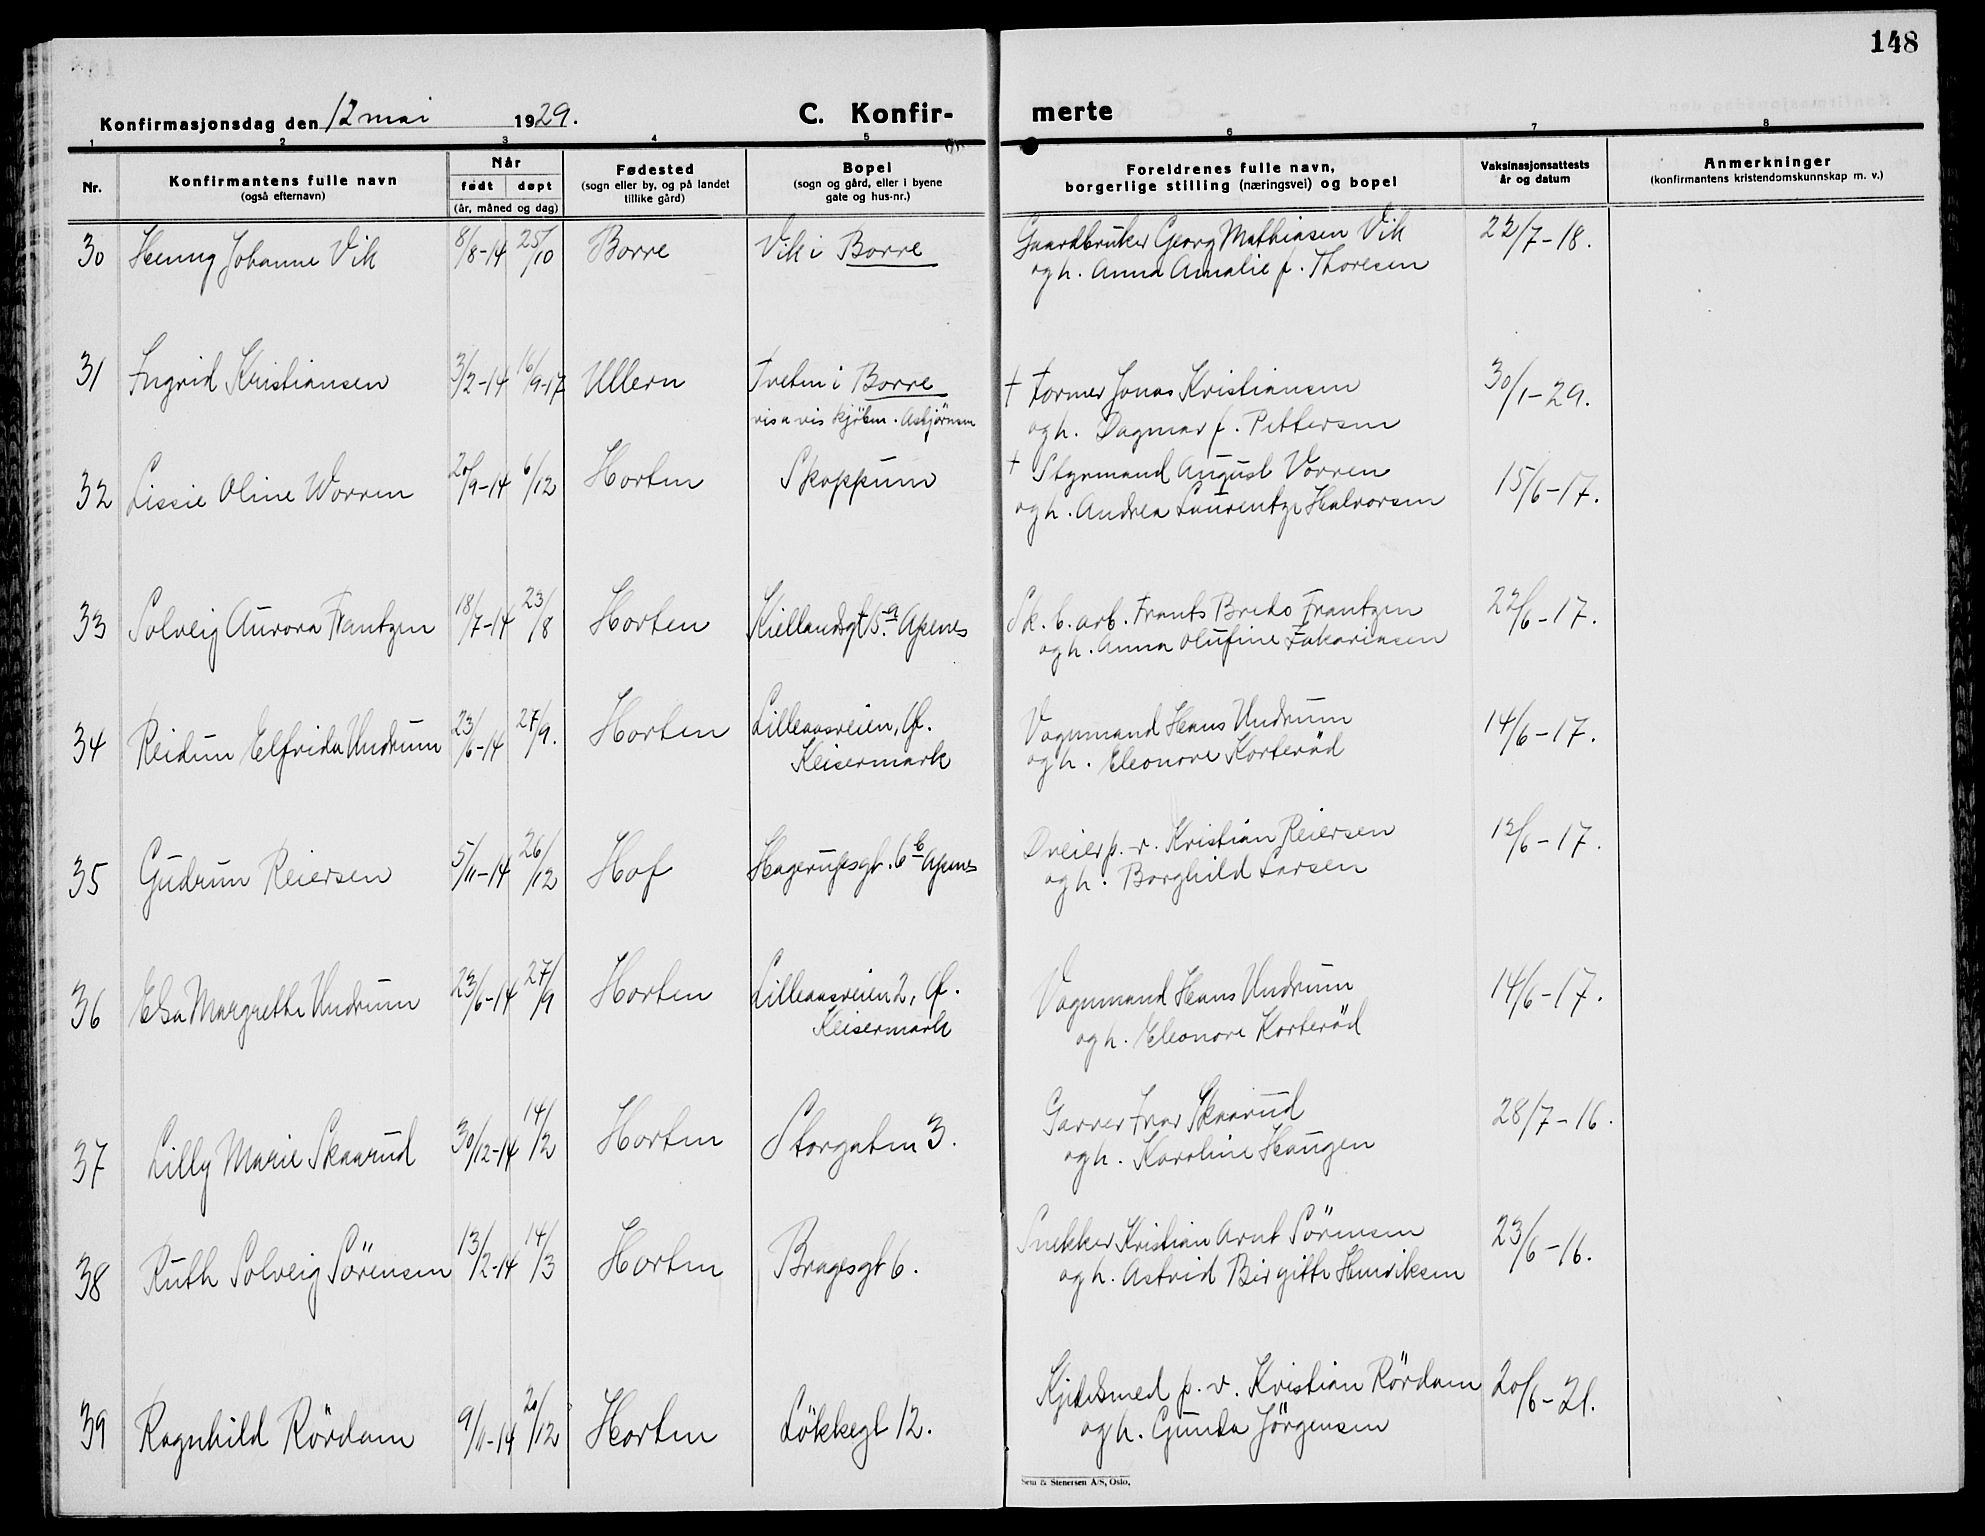 148
Konfirmasjonsdag den 12 mai 1929.
C. Konfir-
merte
1 2 3 4 5 6 7 8
Nr.
Konfirmantens fulle navn
(også efternavn)
Når
født døpt
(år, måned og dag)
Fødested
(sogn eller by, og på landet
tillike gård)
Bopel
(sogn og gård, eller i byene
gate og hus-nr.)
Foreldrenes fulle navn,
borgerlige stilling (næringsvei) og bopel
Vaksinasjonsattests
år og datum
Anmerkninger
(konfirmantens kristendomskunnskap m. v.)
30 Henny Johanne Vik 8/8-14 25/10 Borre Vik i Borre Gaardbruker Georg Mathiasen Vik 22/7-18.
og h. Anna Amalie f. Thoresen
31 Ingrid Kristiansen 3/2-14 16/9-17 Ullern Tveten i Borre † Former Jonas Kristiansen 30/1-29.
vis a vis kjøbm. Asbjørnsen
og h. Dagmar f. Pettersen
32 Lissie Oline Worren 20/9-14 6/12 Horten Skoppum † Styrmand August Vorren 15/6-17.
og h. Andrea Laurentze Halvorsen
33 Solveig Aurora Frantzen 18/7-14 23/8 Horten Kiellandsgt 5a Apenes Sk. b. arb. Frants Bredo Frantzen 22/6-17.
og h. Anna Olufine Zakariasen
34 Reidun Elfrida Undrum 23/6-14 27/9. Horten Lilleaasveien, Ø. Vognmand Hans Undrum 14/6-17.
Keisermark
og h. Eleonore Korteröd
35 Gudrun Reiersen 5/11-14 26/12 Hof Hagerupsgt. 6b Apenes Dreier p. v. Kristian Reiersen 12/6-17.
og h. Borghild Larsen
36 Elsa Margrethe Undrum 23/6-14 27/9 Horten Lilleaasveien 2, Ø. Vognmand Hans Undrum 14/6-17.
Keisermark
og h. Eleonore Korteröd
37 Lilly Marie Skaarud 30/12-14 14/2 Horten Storgaten 3. Garver Ivar Skaarud 28/7-16.
og h. Karoline Haugen
38 Ruth Solveig Sörensen 13/2-14 14/3 Horten Bragesgt 6. Snekker Kristian Arnt Sörensen 23/6-16.
og h. Astrid Birgitte Henriksen
39 Ragnhild Rördam 9/11-14 20/12 Horten Lökkegt 12. Kjelsmed p. v. Kristian Rördam 20/6-21.
og h. Gunda Jörgensen
Sem & Stenersen A/S, Oslo.